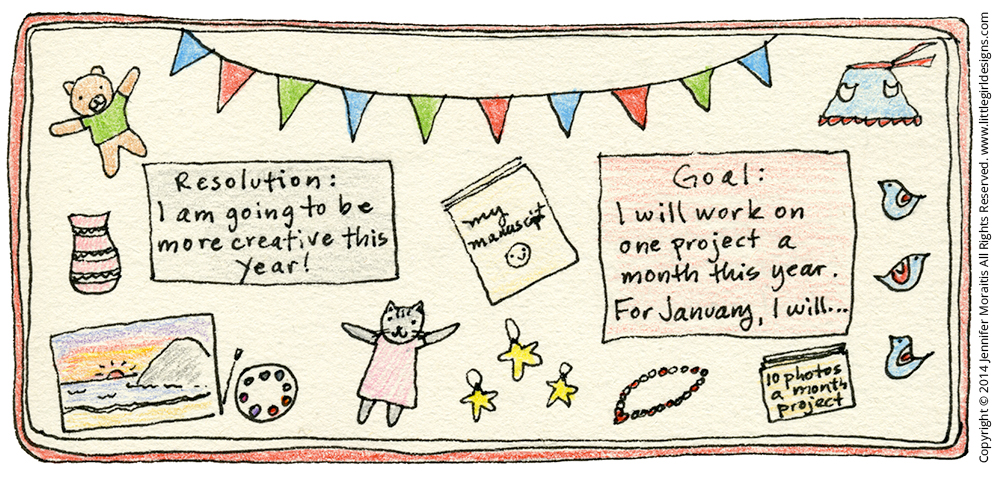 Resolution:
I am going to be
more creative this
year!
my
manuscript
Goal:
I will work on
one project a
month this year.
For January, I will...
10 photos
a month
project
Copyright © 2014 Jennifer Moraitis All Rights Reserved. www.littlegirldesigns.com